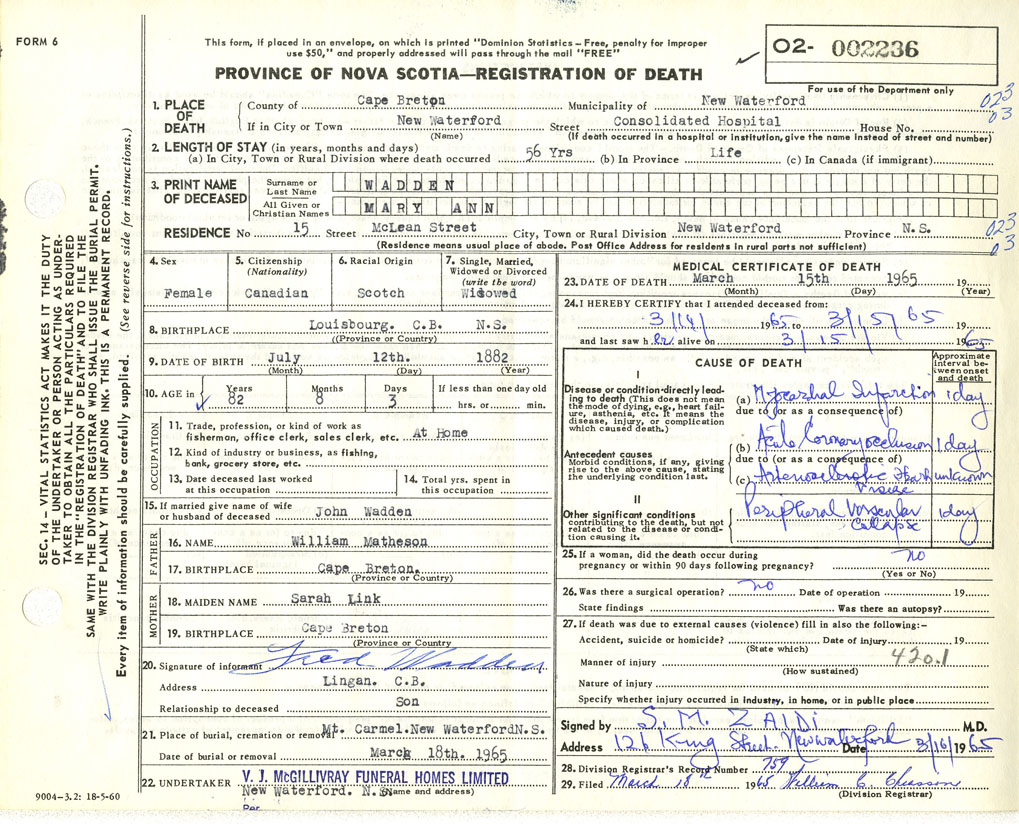 FORM 6
This form, if placed in an envelope, on which is printed "Dominion Statistics – Free, penalty for improper
use $50," and properly addressed will pass through the mail "FREE"
PROVINCE OF NOVA SCOTIA—REGISTRATION OF DEATH
02- 002236
For use of the Department only
023
03
1. PLACE OF DEATH
County of Cape Breton Municipality of New Waterford
If in City or Town New Waterford Street Consolidated Hospital House No.
(Name) (If death occurred in a hospital or institution, give the name instead of street and number)
2. LENGTH OF STAY (in years, months and days)
(a) In City, Town or Rural Division where death occurred 56 Yrs (b) In Province Life (c) In Canada (if immigrant)
3. PRINT NAME OF DECEASED
Surname or Last Name WADDEN
All Given or Christian Names MARY ANN
RESIDENCE No 15 Street McLean Street City, Town or Rural Division New Waterford Province N.S.
(Residence means usual place of abode. Post Office Address for residents in rural parts not sufficient)
023
03
4. Sex
Female
5. Citizenship
(Nationality)
Canadian
6. Racial Origin
Scotch
7. Single, Married, Widowed or Divorced
(write the word)
Widowed
8. BIRTHPLACE Louisbourg. C.B. N.S.
((Province or Country)
9. DATE OF BIRTH July 12th. 1882
(Month) (Day) (Year)
10. AGE in Years 82 Months 8 Days 3 If less than one day old
hrs. or min.
OCCUPATION
11. Trade, profession, or kind of work as
fisherman, office clerk, sales clerk, etc. At Home
12. Kind of industry or business, as fishing,
bank, grocery store, etc.
13. Date deceased last worked
at this occupation
14. Total yrs. spent in
this occupation
15. If married give name of wife
or husband of deceased John Wadden
FATHER
16. NAME William Matheson
17. BIRTHPLACE Cape Breton.
(Province or Country)
MOTHER
18. MAIDEN NAME Sarah Link
19. BIRTHPLACE Cape Breton
(Province or Country)
20. Signature of informant Fred Wadden
Address Lingan. C.B.
Relationship to deceased Son
21. Place of burial, cremation or removal Mt. Carmel. New Waterford N.S.
Date of burial or removal March 18th. 1965
22. UNDERTAKER V. J. McGILLIVRAY FUNERAL HOMES LIMITED
New Waterford. N.S. (Name and address)
Per
MEDICAL CERTIFICATE OF DEATH
23. DATE OF DEATH March 15th 1965
(Month) (Day) (Year)
24. I HEREBY CERTIFY that I attended deceased from:
3/14/ 1965 to 3/15/65 19
and last saw her alive on 3/15/ 1965
CAUSE OF DEATH
Approximate interval between onset and death
I
Disease or condition directly lead-
ing to death (This does not mean
the mode of dying, e.g., heart fail-
ure, asthenia, etc. It means the
disease, injury, or complication
which caused death.)
(a) Myocardial Infarction 1 day
due to (or as a consequence of)
Antecedent causes
Morbid conditions, if any, giving
rise to the above cause, stating
the underlying condition last.
(b) Acute Coronary occlusion 1 day
due to (or as a consequence of)
(c) Arteriosclerotic Heart unknown
II
Other significant conditions
contributing to the death, but not
related to the disease or condi-
tion causing it.
Peripheral Vascular 1 day
Collapse
25. If a woman, did the death occur during
pregnancy or within 90 days following pregnancy? no
(Yes or No)
26. Was there a surgical operation? no Date of operation 19
State findings Was there an autopsy?
27. If death was due to external causes (violence) fill in also the following:–
Accident, suicide or homicide? Date of injury 19
(State which)
420.1
Manner of injury
(How sustained)
Nature of injury
Specify whether injury occurred in industry, in home, or in public place
Signed by S. M. ZAIDI M.D.
Address 126 King Street. New waterford Date 3/16/1965
28. Division Registrar's Record Number 759
29. Filed March 18th 1965 William C. Chiasson
(Division Registrar)
SEC. 14 – VITAL STATISTICS ACT MAKES IT THE DUTY
OF THE UNDERTAKER OR PERSON ACTING AS UNDER-
TAKER TO OBTAIN ALL THE PARTICULARS REQUIRED
IN THE "REGISTRATION OF DEATH" AND TO FILE THE
SAME WITH THE DIVISION REGISTRAR WHO SHALL ISSUE THE BURIAL PERMIT.
WRITE PLAINLY WITH UNFADING INK. THIS IS A PERMANENT RECORD.
Every item of information should be carefully supplied. (See reverse side for instructions.)
9004–3.2: 18-5-60